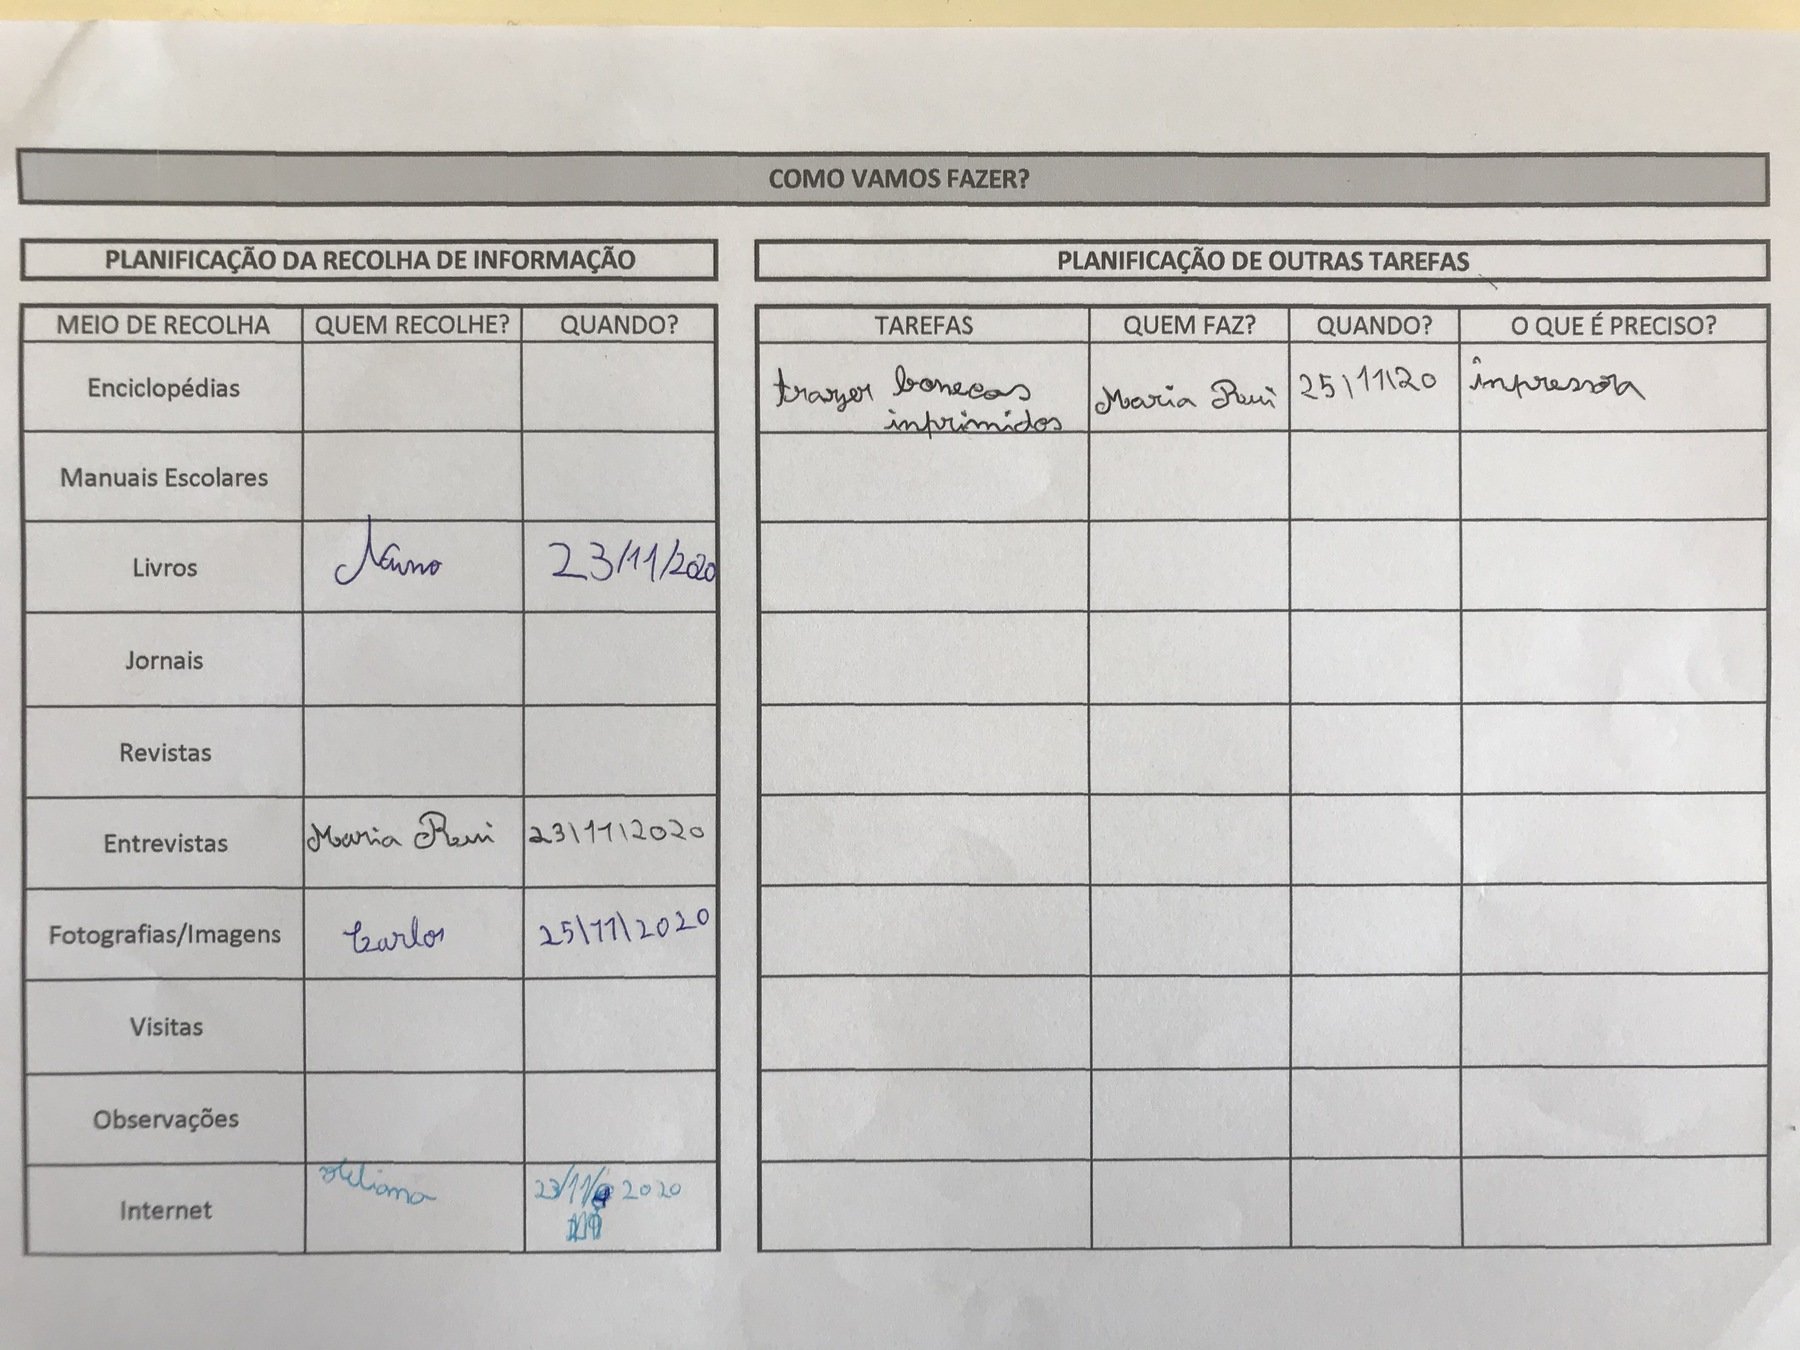 COMO VAMOS FAZER?
PLANIFICAÇÃO DA RECOLHA DE INFORMAÇÃO
MEIO DE RECOLHA QUEM RECOLHE? QUANDO?
Enciclopédias
Manuais Escolares
Livros Nuno 23/11/2020
Jornais
Revistas
Entrevistas Maria 23\11\2020
Fotografias/Imagens Carlos 25\11\2020
Visitas
Observações
Internet 23/11/ 2020
PLANIFICAÇÃO DE OUTRAS TAREFAS
TAREFAS QUEM FAZ? QUANDO? O QUE É PRECISO?
trazer bonecos Maria 25\11\20 inpressora
inprimidos